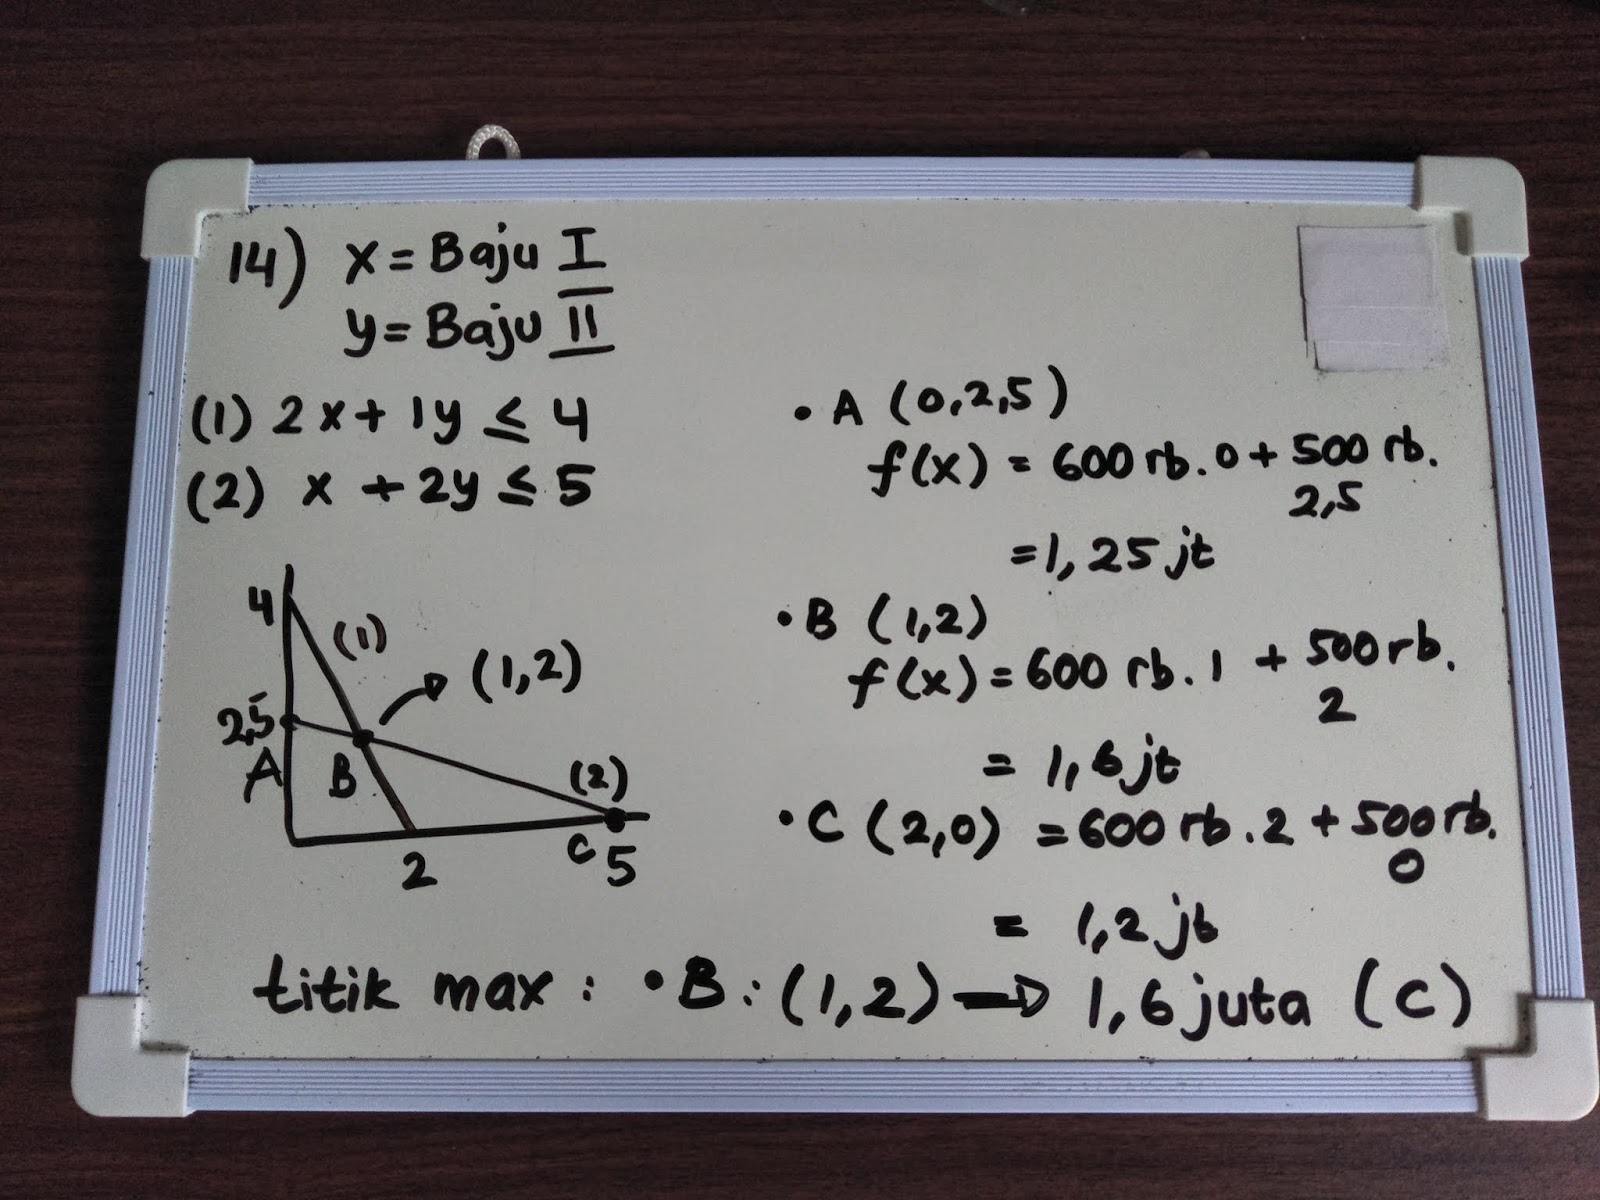 14) x = Baju I
y = Baju II
(1) 2x + 1y ≤ 4
(2) x + 2y ≤ 5
4
(1)
(1,2)
2,5
A
B
(2)
C
2
5
• A (0,2,5)
f(x) = 600 rb. 0 + 500 rb.
2,5
= 1,25 jt
• B (1,2)
f(x) = 600 rb. 1 + 500 rb.
2
= 1,6 jt
• C (2,0) = 600 rb. 2 + 500 rb.
0
= 1,2 jt
titik max : • B : (1,2) → 1,6 juta (C)